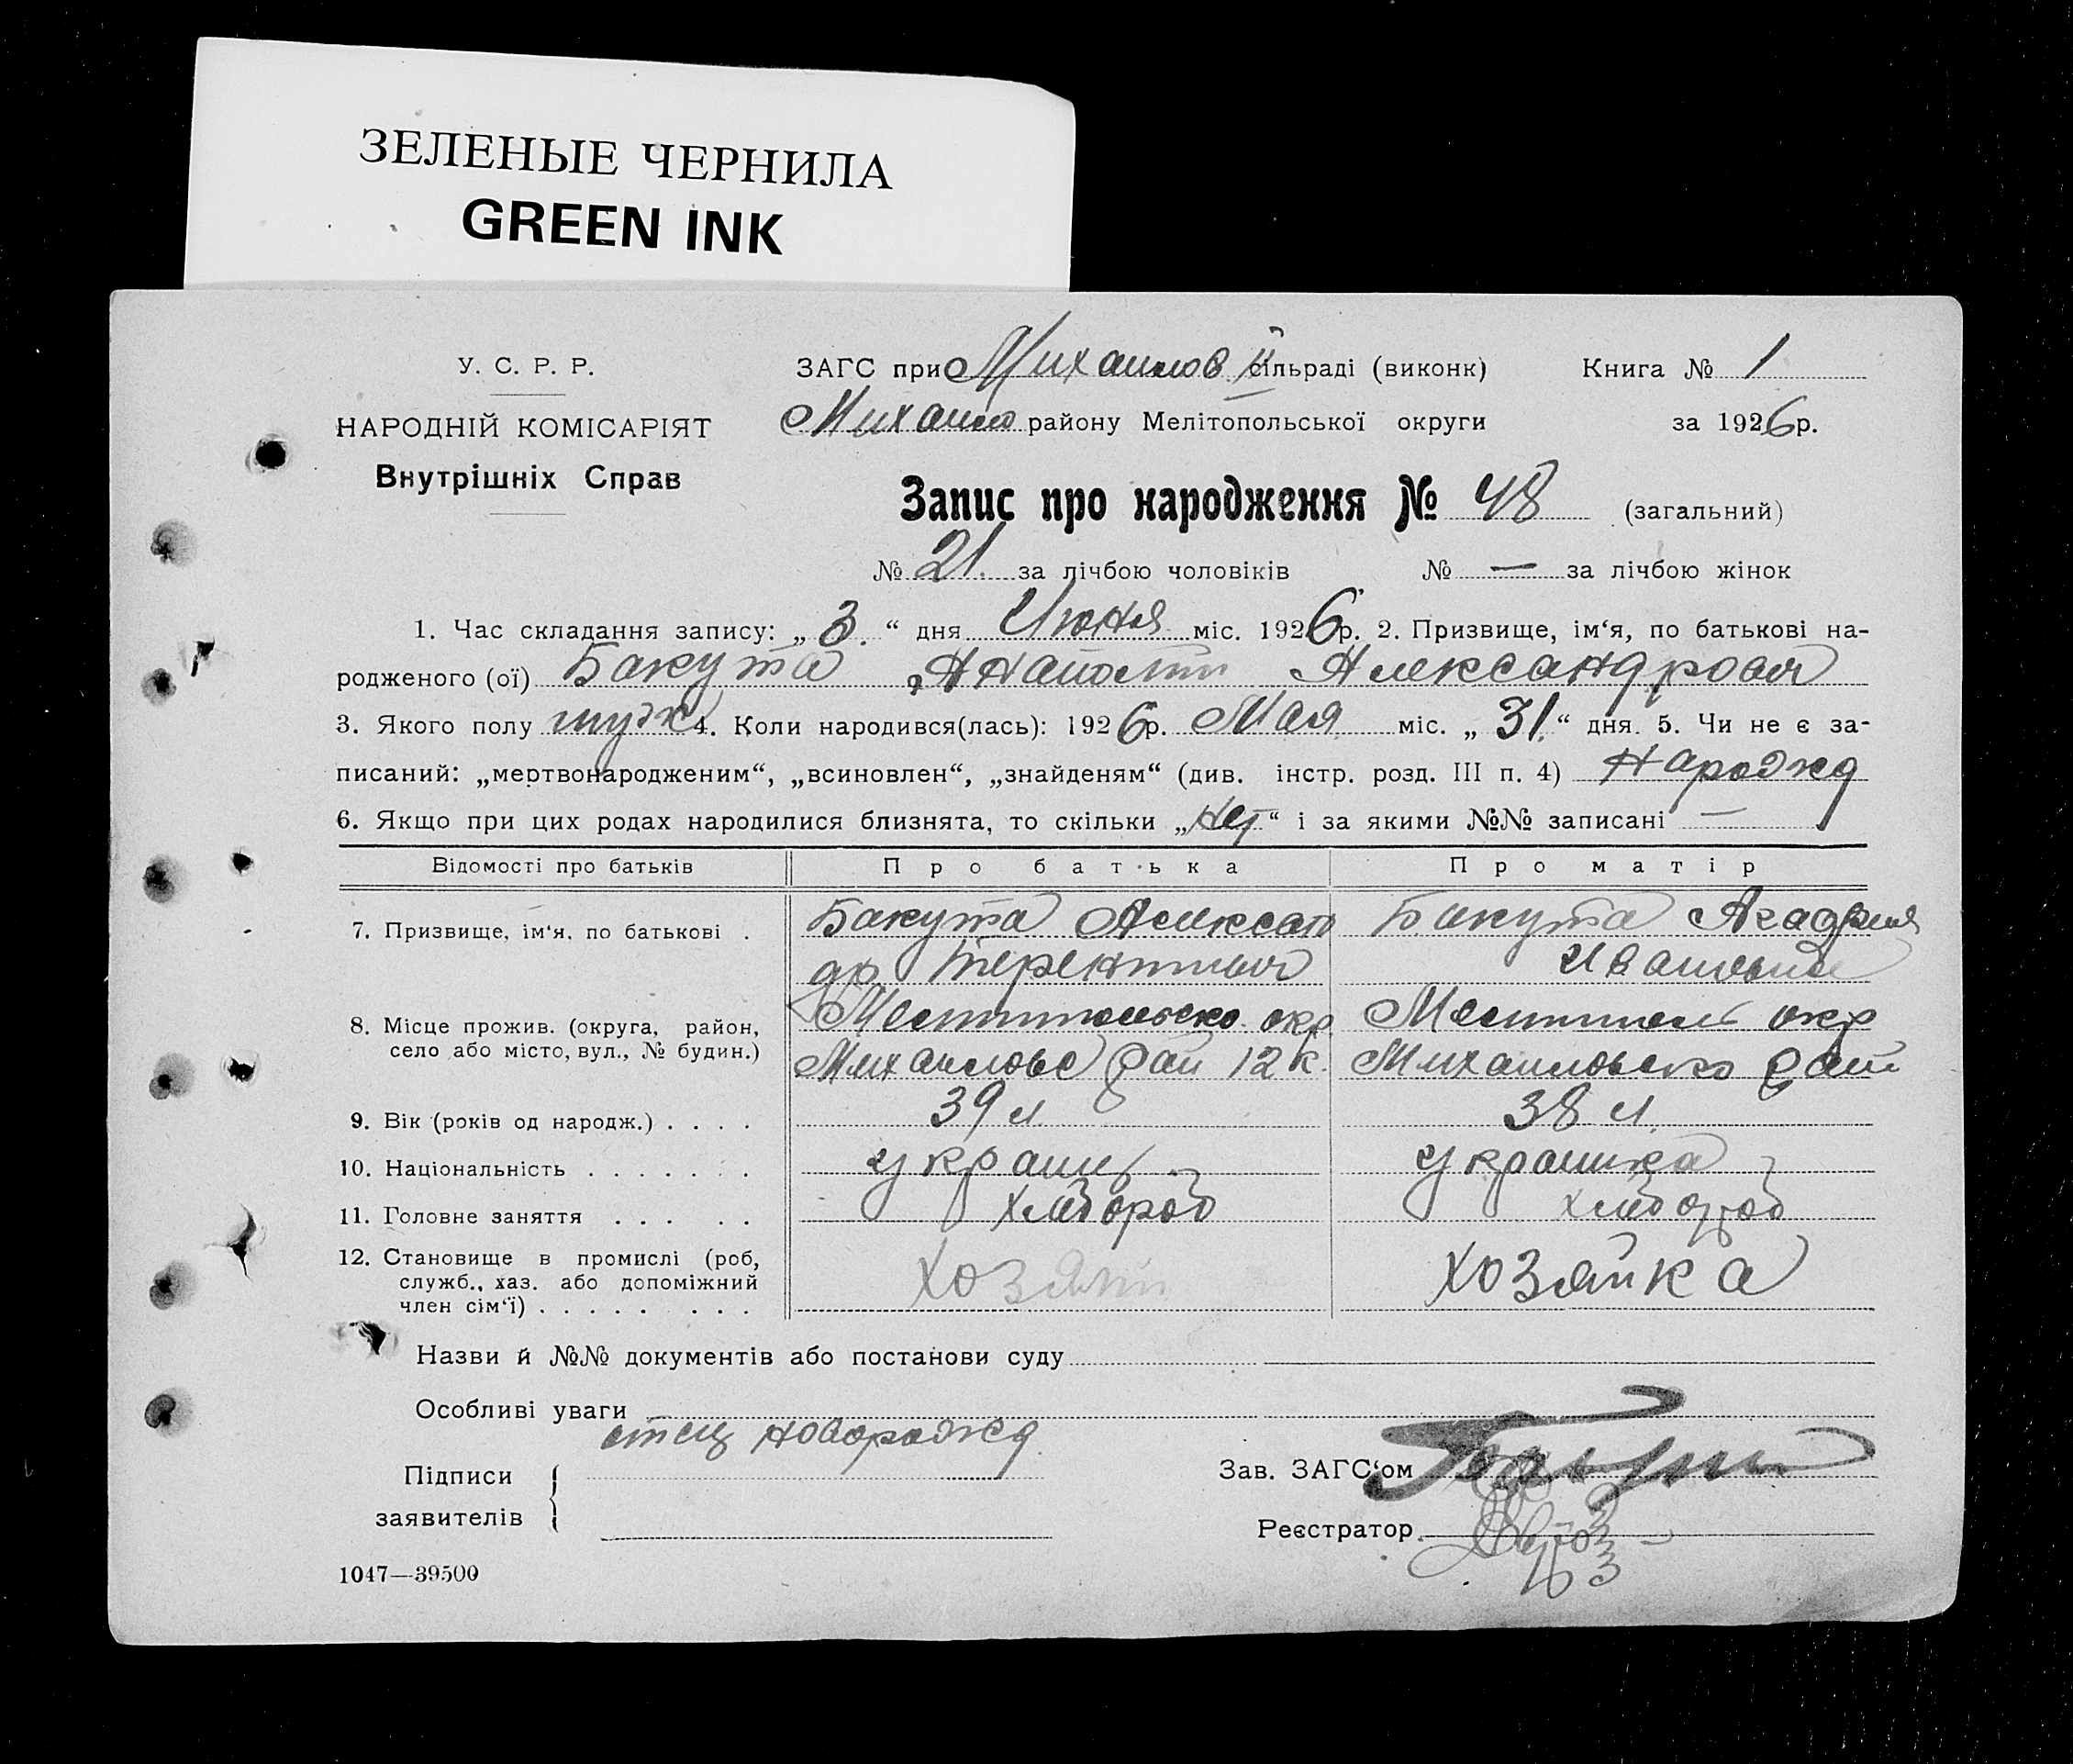 ЗЕЛЕНЫЕ ЧЕРНИЛА
GREEN INK
У. С. Р. Р.
НАРОДНІЙ КОМІСАРІЯТ
Внутрішніх Справ
ЗАГС при Михайлов ІІ сільраді (виконк) Книга № 1
Михайло району Мелітопольської округи за 1926р.
Запис про народження № 48 (загальний)
№ 21. за лічбою чоловіків № — за лічбою жінок
1. Час складання запису: „3.“ дня Июня міс. 1926р. 2. Призвище, ім‘я, по батькові на-
родженого (ої) Бакута Анатолий Александрович
3. Якого полу муж 4. Коли народився(лась): 1926р. Мая міс. „31.“ дня. 5. Чи не є за-
писаний: „мертвонародженим“, „всиновлен“, „знайденям“ (див. інстр. розд. III п. 4) Нарожд
6. Якщо при цих родах народилися близнята, то скільки „нет“ і за якими №№ записані —
Відомості про батьків Про батька Про матір
7. Призвище, ім‘я, по батькові . Бакута Александ Бакута Агафия
др Терентиев Ивановна
8. Місце прожив. (округа, район, село або місто, вул., № будин.) Мелитопольско окр Мелитополь окр
Михайловс рай 12 к. Михайловско рай
9. Вік (років од народж.) . . . . 39 л. 38 л.
10. Національність . . . . . . . украинец украинка
11. Головне заняття . . . . . хлебороб хлебороб
12. Становище в промислі (роб,
служб., хаз. або допоміжний
член сім‘ї) . . . . . . . . хозяин хозяйка
Назви й №№ документів або постанови суду
Особливі уваги
отец новорожд
Підписи
заявителів
Зав. ЗАГС‘ом
Реєстратор
1047—39500